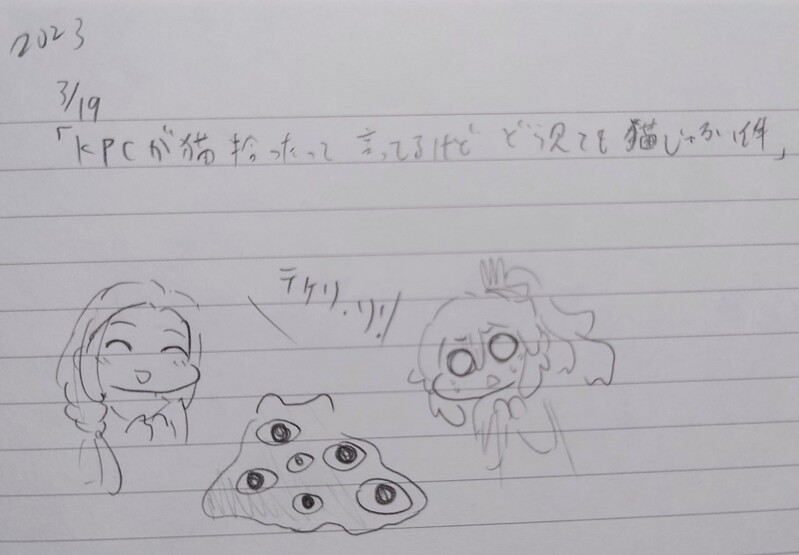 2023
3/19
「KPCが猫拾ったって言ってるけどどう見ても猫じゃない件」
テケリ・リ!